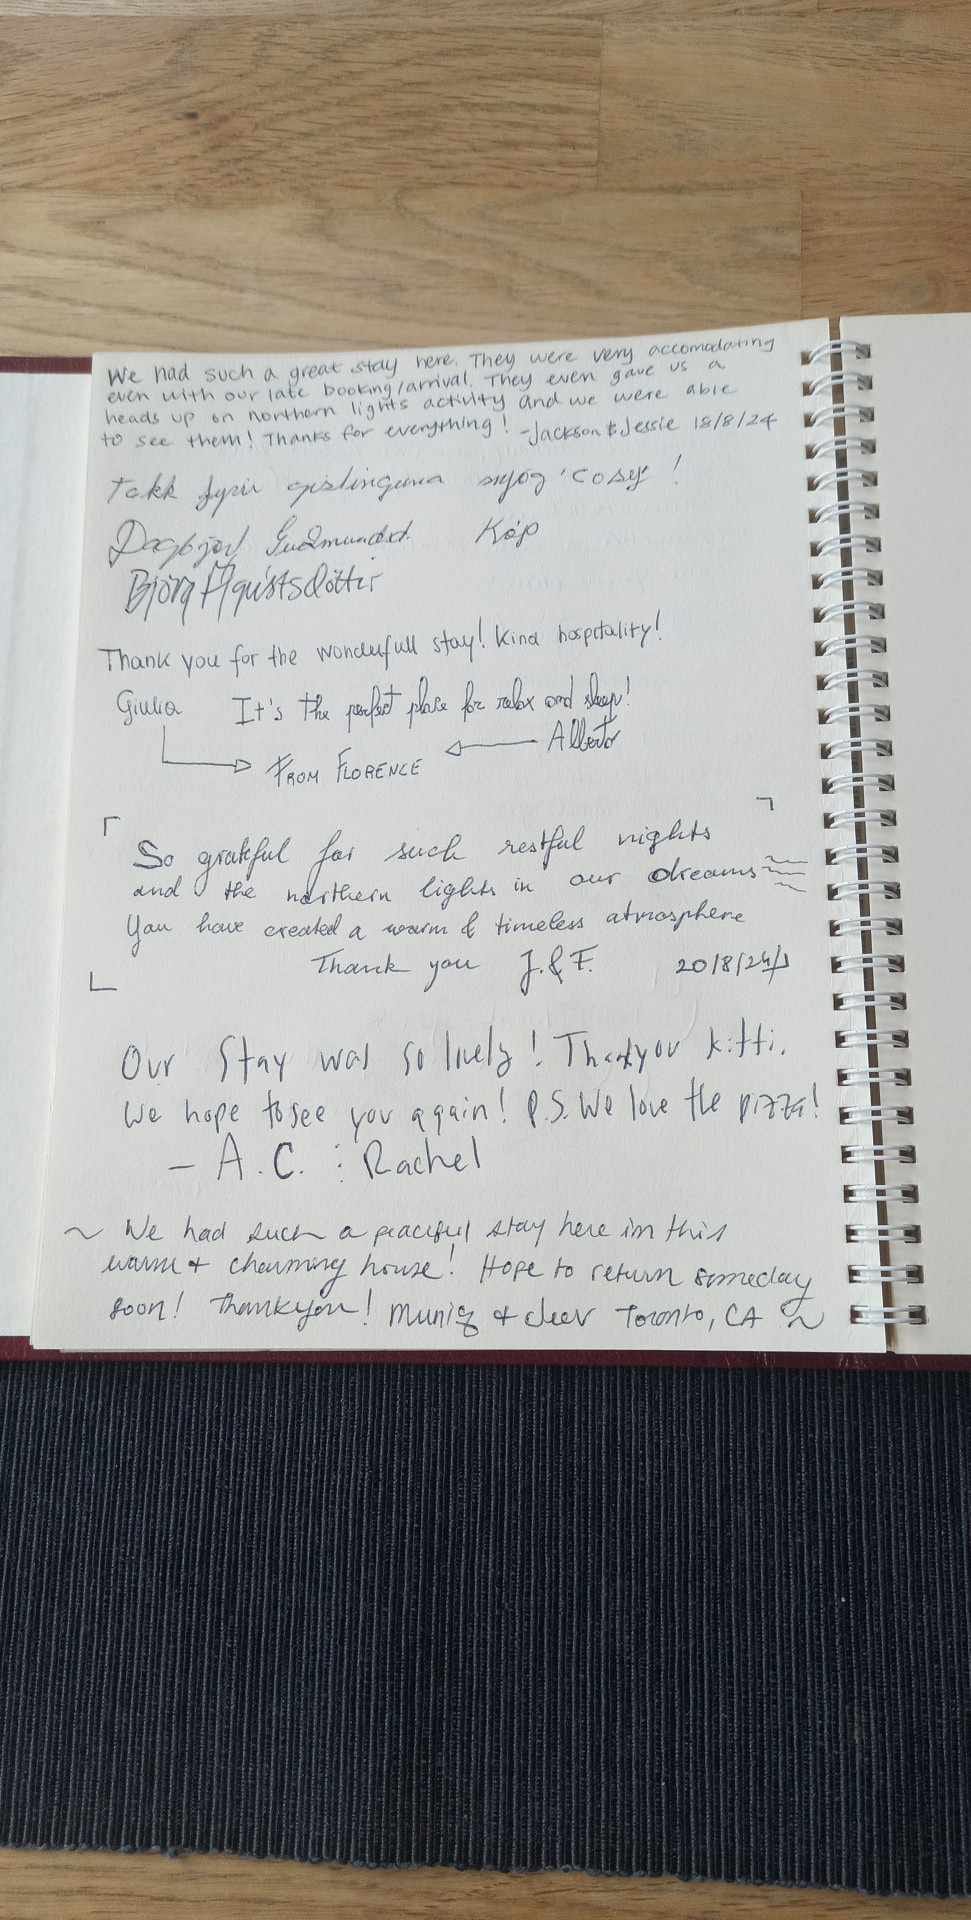 We had such a great stay here. They were very accomodating
even with our late booking/arrival. They even gave us a
heads up on northern lights activity and we were able
to see them! Thanks for everything! -Jackson & Jessie 18/8/24
Takk fyrir gistinguna mjög 'cosy' !
Dagbjört Guðmundsd. Kóp
Björg Ágústsdóttir
Thank you for the wonderfull stay! Kind hospitality!
Giulia It's the perfect place for relax and sleep!
Alberto
FROM FLORENCE
So grateful for such restful nights
and the northern lights in our dreams
You have created a warm & timeless atmosphere
Thank you J. & F. 20/8/24
Our Stay was so lively! Thank you Kitti.
We hope to see you again! P.S. We love the pizza!
- A.C. : Rachel
~ We had such a peaceful stay here in this
warm + charming house! Hope to return someday
soon! Thank you! Muniq + Toronto, CA ~